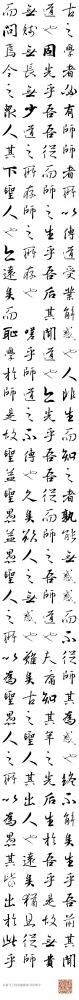 古之學者必有師師者所以傳道受業解惑也人非生而知之者孰能無惑惑而不從師其為惑也終不解矣生乎吾前其聞
道也固先乎吾吾從而師之生乎吾後其聞道也亦先乎吾吾從而師之吾師道也夫庸知其年之先後生於吾乎是故無貴
無賤無長無少道之所存師之所存也嗟乎師道之不傳也久矣欲人之無惑也難矣古之聖人其出人也遠矣猶且從師
而問焉今之眾人其下聖人也亦遠矣而恥學於師是故聖益聖愚益愚聖人之所以為聖愚人之所以為愚其皆出於此乎